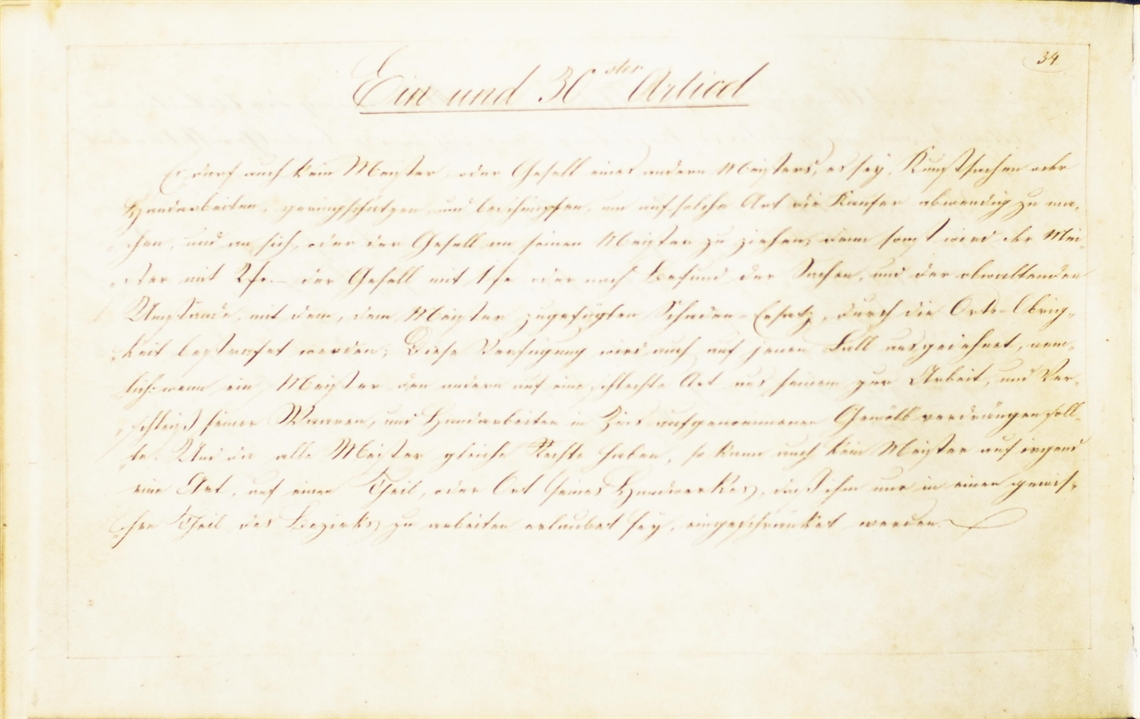 34
Ein und 30ster Articel
Es darf auch kein Meister oder Gesell eines andern Meisters, es sey Kunstsachen oder
Handarbeiten, geringschätzen und beschimpfen, um auf solche Art die Käufer abwendig zu ma-
chen, und an sich, oder der Gesell an seinen Meister zu ziehen, denn sonst wird der Mei-
ster mit 2 fr. der Gesell mit 1 fr oder nach Befund der Sachen, und der obwaltenden
Umstände, mit dem, dem Meister zugefügten Schaden-Ersatz, durch die Orts-Obrig-
keit bestrafet werden; Diese Verfügung wird auch auf jenen Fall ausgedehnet, wenn
ein Meister den andern auf eine schlechte Art aus seinem zur Arbeit, und Ver-
schleiß seiner Waaren, und Handarbeiten in Zins aufgenommenen Gewölb verdrängen soll-
te. Und da alle Meister gleiche Rechte haben, so kann auch kein Meister auf irgend
eine Art, auf einen Theil, oder Ort seines Handwerkes, daß ihm nur in einen gewis-
sen Theil des Bezirks zu arbeiten erlaubet sey, eingeschränket werden